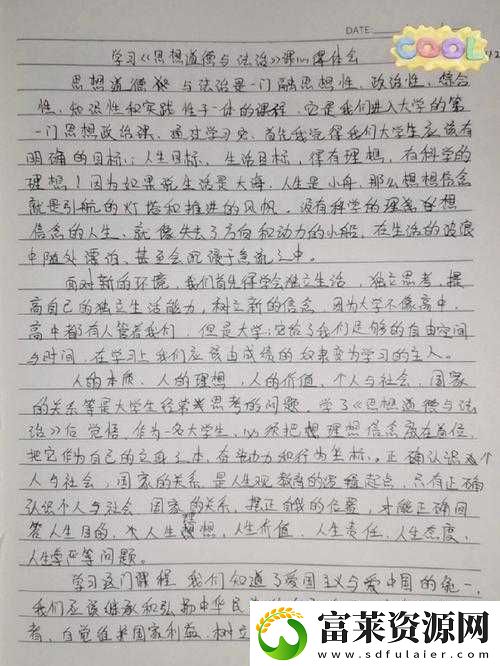 DATE:
COOL
学习《思想道德与法治》课心得体会
思想道德和与法治是一门融思想性、政治性、综合
性、知识性和实践性于一体的课程，它是我们进入大学的第
一门思想政治课、通过学习后、首先我觉得我们大学生应该有
明确的目标：人生目标、生活目标，得有理想，有科学的
理想！因为如果说生活是大海，人生是小舟，那么想想信念
就是引航的灯塔和推进的风帆。没有科学的理想
信念的人生、就像失去了方向和动力的小船，在生活的波浪
中随处漂泊，甚至会沉没于急流之中。
面对新的环境，我们首先得学会独立生活，独立思考，提
高自己的独立生活能力，树立新的信念，因为大学不像高中，
高中都有人管着我们，但是大学；它给了我们足够的自由空间
与时间，在学习上我们应该由成绩的奴隶变为学习的主人。
人的本质、人的理想，人的价值、个人与社会、国家
的关系等是大学生经常思考的问题。学了《思想道德与法
治》后觉悟，作为一名大学生，必须把理想信念放在首位，
把它作为自己的立身之本，奋斗动力和行为坐标。正确认识个
人与社会，国家的关系，是人生观教育的逻辑起点，只有正确
认识个人与社会、国家的关系，摆正自我的位置，才能正确回
答人生目的，人生理想，人生价值，人生责任，人生态度，
人生荣严等问题。
学习这门课程，我们知道了爱国主义与爱中国的统一，
我们应该继承和弘扬中华民
者，自觉维护国家利益，树立
富莱资源网
www.sdfulaier.com